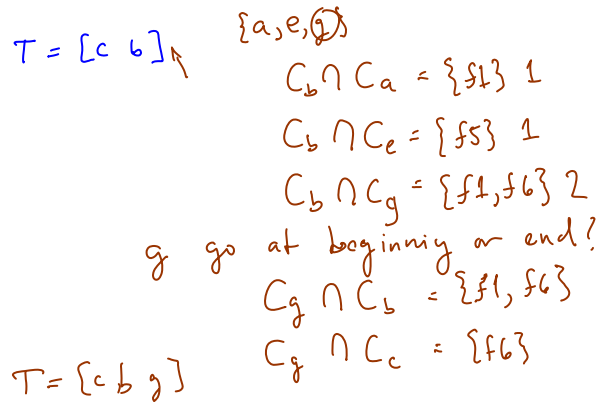 {a,e,g}
T = [c b]
C_b ∩ C_a = {f1} 1
C_b ∩ C_e = {f5} 1
C_b ∩ C_g = {f1,f6} 2
g go at beginniy or end?
C_g ∩ C_b = {f1, f6}
C_g ∩ C_c = {f6}
T = [c b g]